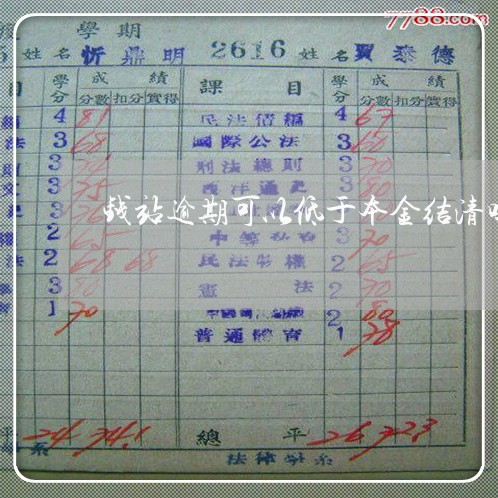 7788.com
學期
5 姓名 忻鼎明 2616 姓名 賈泰德
目 學分 成績 課目 學分 成績
分數 扣分 實得 分數 扣分 實得
4 81 民法債編 4 67
法 3 68 國際公法 3 60
則 3 刑法總則 3 70
文 3 75 西洋通史 3 80
钱站逾期可以低于本金结清吗
權 2 65 3 70
法 2 68 68 民法物權 2 65
3 80 憲法 2 70
育 1 70 2 80
普通體育 1 78
平 24 74.1 總平 26 72.3
系 法律學系